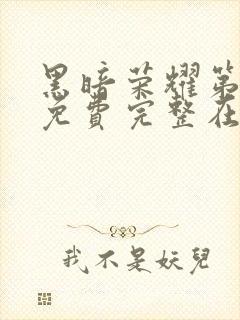 黑暗荣耀第
免費完整在
我不是妖兒